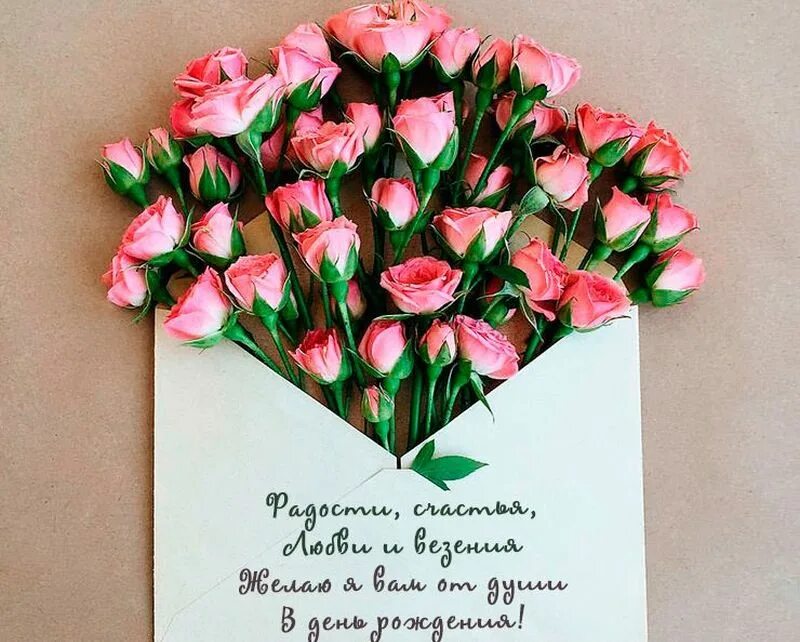 Радости, счастья,
Любви и везения
Желаю я вам от души
В день рождения!